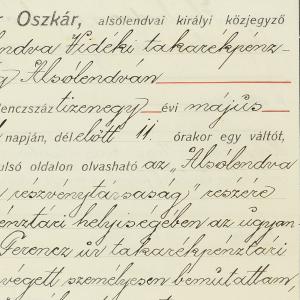 r Oszkár, alsólendvai királyi közjegyző
lendva Vidéki takarékpénz-
g Alsólendván
lenczszáz tizenegy évi május
napján, dél előtt 11. órakor egy váltót,
ulsó oldalon olvasható az „Alsólendva
részvénytársaság" részére
énztári helyiségében az ugyan-
Ferenc úr takarékpénztári
végett személyesen bemutattam,